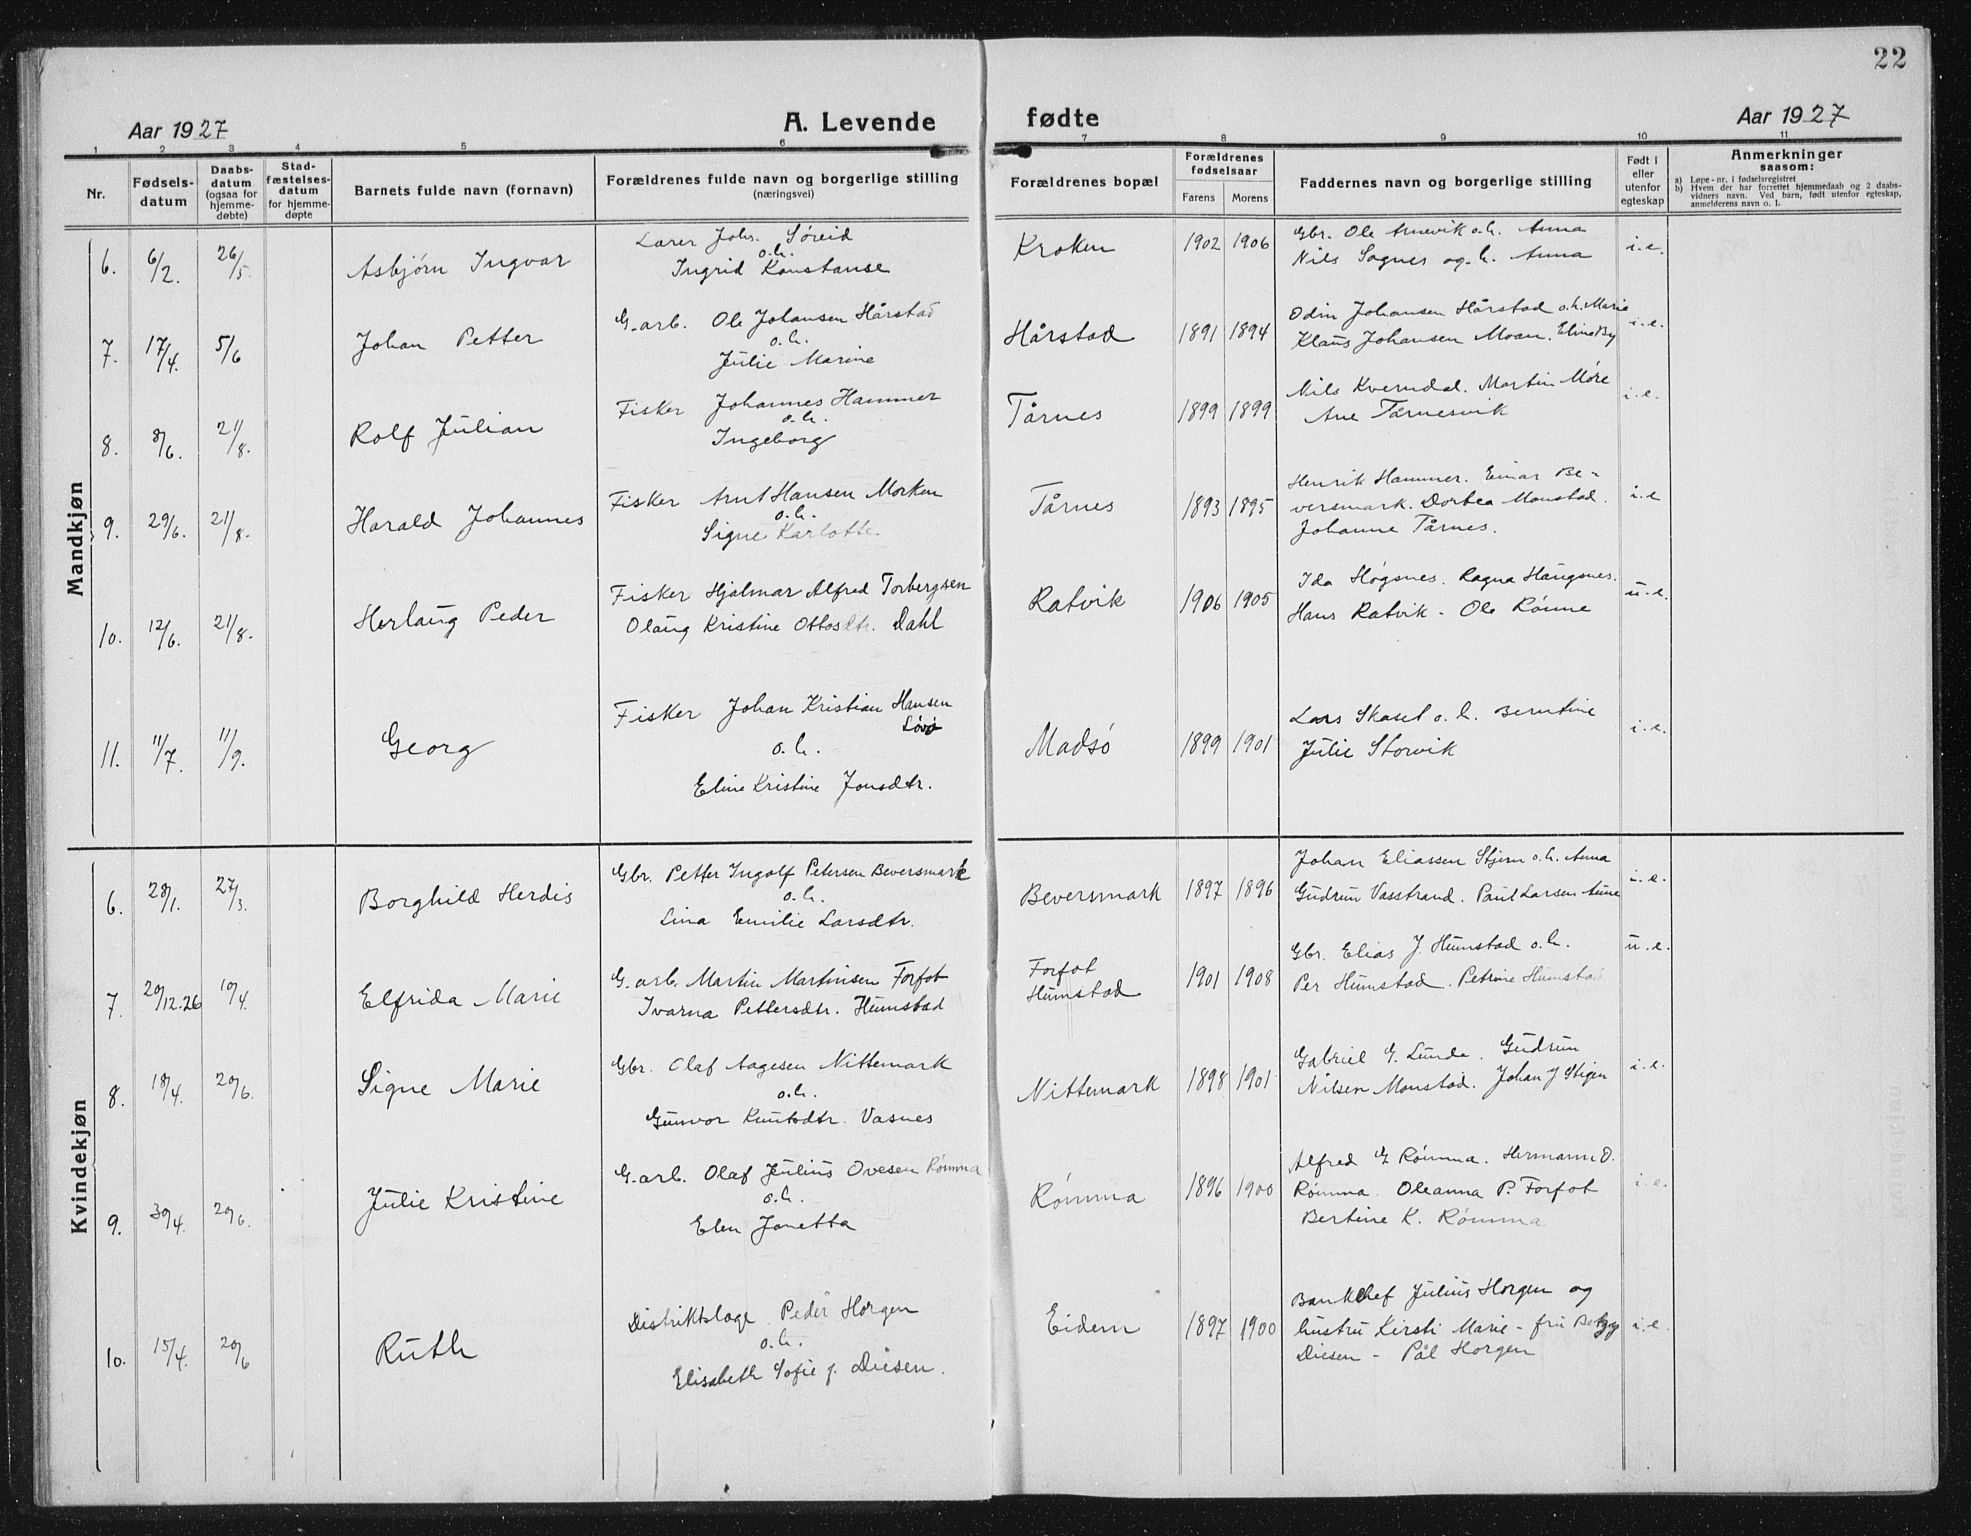 22
Aar 1927 A. Levende fødte Aar 1927
1 2 3 4 5 6 7 8 9 10 11
Nr. Fødsels-datum Daabs-datum (ogsaa for hjemme-døbte) Stad-fæstelses-datum for hjemme-døpte Barnets fulde navn (fornavn) Forældrenes fulde navn og borgerlige stilling (næringsvei) Forældrenes bopæl Forældrenes fødselsaar Farens Morens Faddernes navn og borgerlige stilling Født i eller utenfor egteskap Anmerkninger saasom:
a) Løpe-nr. i fødselsregistret
b) Hvem der har forrettet hjemmedaab og 2 daabs-
vidners navn. Ved barn, født utenfor egteskap,
anmelderens navn o. l.
Mandkjøn
6. 6/2. 26/5. Asbjørn Ingvar
Lærer Johs. Søreid
o.h.
Ingrid Konstanse
Kroken 1902 1906
Gbr. Ole Arnevik o.h. Anna
Nils Sognes og h. Anna
i.e.
7. 17/4. 5/6 Johan Petter
G.arb. Ole Johansen Hårstad
o.h.
Julie Marine
Hårstad 1891 1894
Odin Johansen Hårstad o.h. Marie
Klaus Johansen Moan. Eline By
i.e.
8. 8/6. 21/8. Rolf Julian
Fisker Johannes Hammer
o.h.
Ingeborg
Tårnes 1899 1899
Nils Kverndal. Martin Møre
Ane Tårnesvik
i.e.
9. 29/6. 21/8. Harald Johannes
Fisker Arnt Hansen Morken
o.h.
Signe Karlotte.
Tårnes 1893 1895
Henrik Hammer. Einar Be-
versmark. Dorbea Monstad.
Johanne Tårnes.
i.e
10. 12/6. 21/8. Herlaug Peder
Fisker Hjalmar Alfred Torbergsen
Olaug Kristine Ottosdtr. Dahl
Ratvik 1906 1905
Ida Høgsnes. Ragna Haugsnes.
Hans Ratvik - Ole Rønne
u.e.
11. 11/7. 11/9. Georg
Fisker Johan Kristian Hansen
Løvø
o.h.
Eline Kristine Jonsdtr.
Madsø 1899 1901
Lars Skaset o.h. Berntine
Julie Storvik
i.e.
Kvindekjøn
6. 28/1. 27/3. Borghild Herdis
Gbr. Petter Ingolf Petersen Beversmark
o.h.
Lina Emilie Larsdtr.
Beversmark 1897 1896
Johan Eliassen Stjern o.h. Anna
Gudrun Vasstrand. Paul Larsen Aune
i.e.
7. 20/12.26 10/4. Elfrida Marie
G.arb. Martin Martinsen Forfot
Ivarna Pettersdtr. Humstad
Forfot
Humstad
1901 1908
Gbr. Elias J. Humstad o.h.
Per Humstad. Petrine Humstad
u.e.
8. 18/4. 20/6. Signe Marie
Gbr. Olaf Aagesen Nittemark
o.h.
Gunvor Knutsdtr. Vasnes
Nittemark 1898 1901
Gabriel G. Lunde. Gudrun
Nilsen Monstad. Johan J Stigen
i.e.
9. 30/4. 20/6. Julie Kristine
G.arb. Olaf Julius Ovesen Rømma
o.h.
Elen Janetta
Rømma 1896 1900
Alfred G Rømma. Hermann O.
Rømma. Oleanna P. Forfot
Bertine K. Rømma
i.e.
10. 15/4. 20/6 Ruth
Distriktslæge Peder Horgen
o.h.
Elisabeth Sofie f. Diesen.
Eidem 1897 1900
Bankchef Julius Horgen og
hustru Kirsti Marie - fru
Diesen - Pål Horgen
i.e.